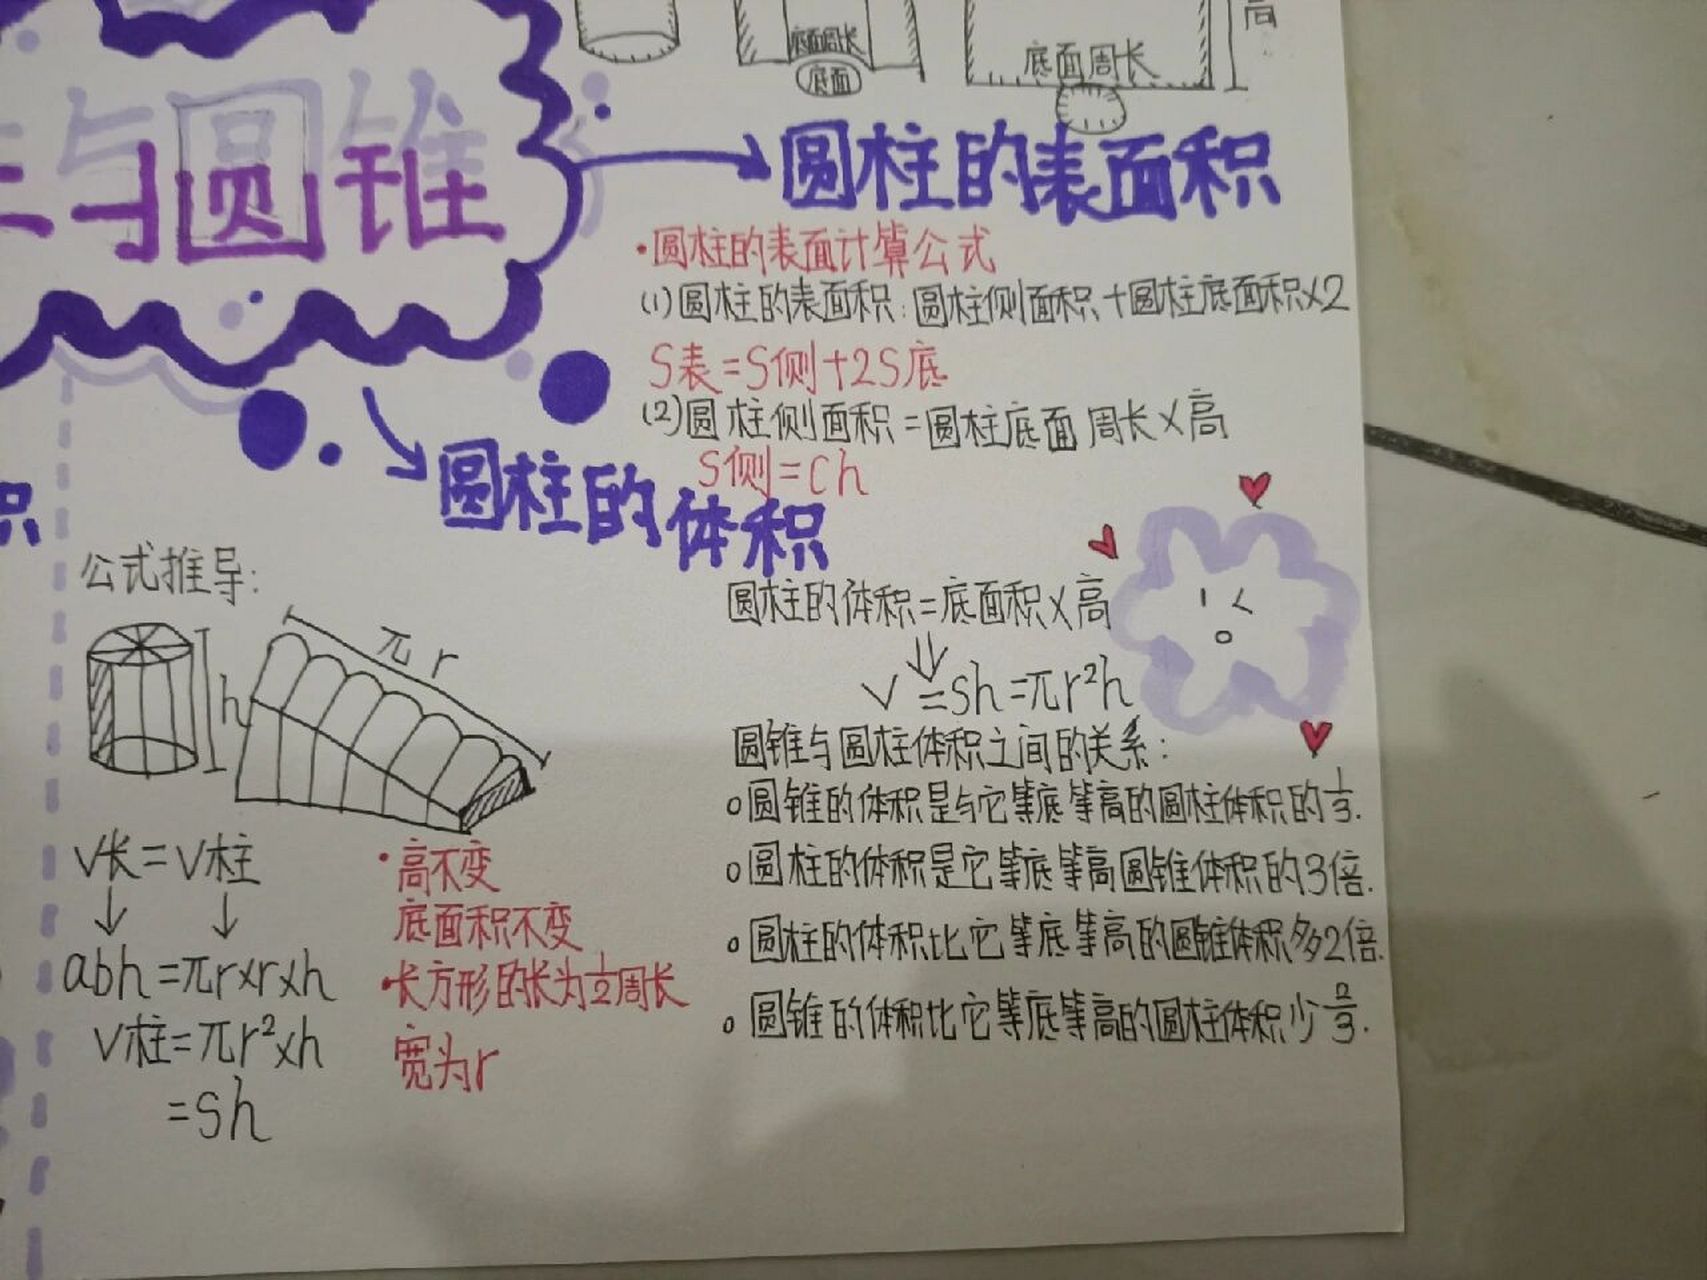 底面周长
底面
底面周长
高
与圆锥
圆柱的表面积
·圆柱的表面计算公式
(1)圆柱的表面积:圆柱侧面积+圆柱底面积×2
S表=S侧+2S底
(2)圆柱侧面积=圆柱底面周长×高
S侧=Ch
圆柱的体积
积
公式推导:
h
πr
V长=V柱
↓ ↓
abh=πr×r×h
V柱=πr²×h
=Sh
·高不变
底面积不变
·长方形的长为1/2周长
宽为r
圆柱的体积=底面积×高
V=Sh=πr²h
圆锥与圆柱体积之间的关系:
○圆锥的体积是与它等底等高的圆柱体积的1/3.
○圆柱的体积是它等底等高圆锥体积的3倍.
○圆柱的体积比它等底等高的圆锥体积多2倍.
○圆锥的体积比它等底等高的圆柱体积少2/3.